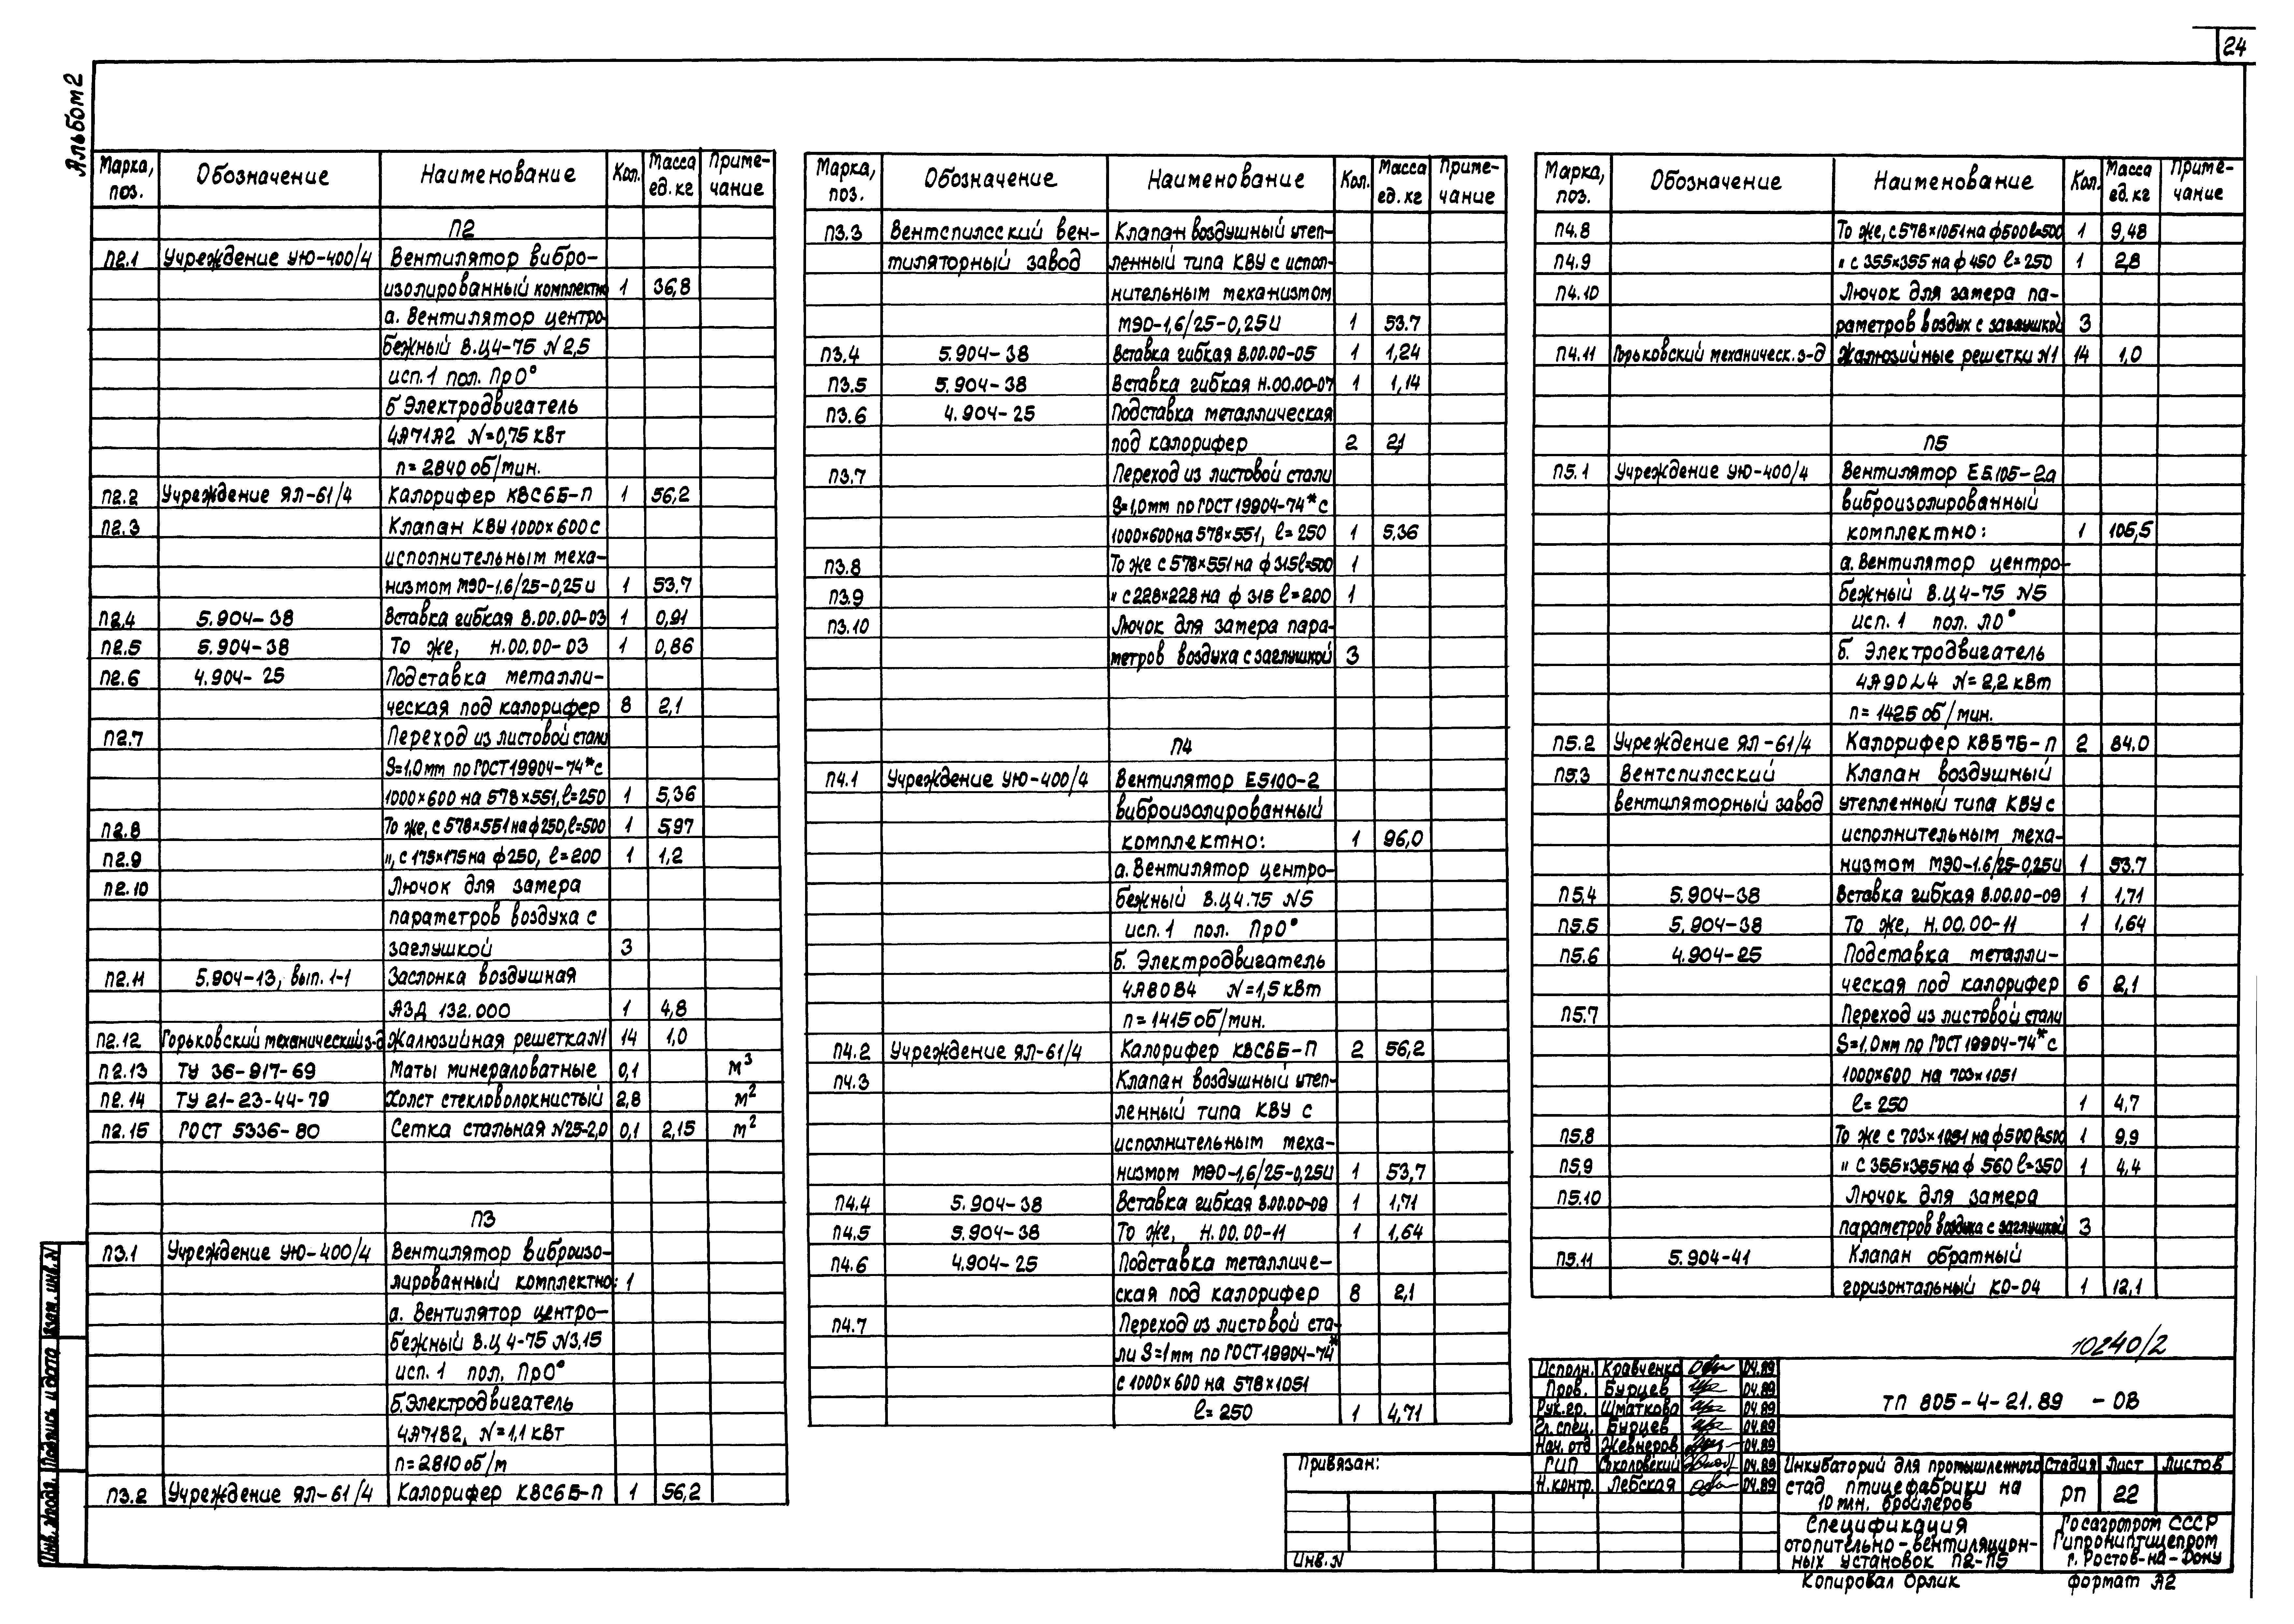 24
Альбом 2
Марка, поз. Обозначение Наименование Кол. Масса ед. кг Приме-чание
П2
П2.1 Учреждение УЮ-400/4 Вентилятор вибро-
изолированный комплектно 1 36,8
а. Вентилятор центро-
бежный В.Ц4-75 N2,5
исп.1 пол. ПрО°
б Электродвигатель
4А71А2 N=0,75 кВт
n=2840 об/мин.
П2.2 Учреждение ЯЛ-61/4 Калорифер КВС6Б-П 1 56,2
П2.3 Клапан КВУ 1000×600 с
исполнительным меха-
низмом МЭО-1.6/25-0,25И 1 53.7
П2.4 5.904-38 Вставка гибкая В.00.00-03 1 0,91
П2.5 5.904-38 То же, Н.00.00-03 1 0,86
П2.6 4.904-25 Подставка металли-
ческая под калорифер 8 2,1
П2.7 Переход из листовой стали
S=1,0мм по ГОСТ 19904-74* с
1000×600 на 578×551, ℓ=250 1 5,36
П2.8 То же, с 578×551 на ф250, ℓ=500 1 5,97
П2.9 ", с 175×175 на ф250, ℓ=200 1 1,2
П2.10 Лючок для замера
параметров воздуха с
заглушкой 3
П2.11 5.904-13, вып. 1-1 Заслонка воздушная
АЗД 132.000 1 4,8
П2.12 Горьковский механический з-д Жалюзийная решетка N1 14 1,0
П2.13 ТУ 36-917-69 Маты минераловатные 0,1 м³
П2.14 ТУ 21-23-44-79 Холст стекловолокнистый 2,8 м²
П2.15 ГОСТ 5336-80 Сетка стальная N25-2,0 0,1 2,15 м²
П3
П3.1 Учреждение УЮ-400/4 Вентилятор виброизо-
лированный комплектно: 1
а. Вентилятор центро-
бежный В.Ц 4-75 N3,15
исп. 1 пол. ПрО°
б.Электродвигатель
4А71В2, N=1,1 кВт
n=2810 об/м
П3.2 Учреждение ЯЛ-61/4 Калорифер КВС6Б-П 1 56,2
Марка, поз. Обозначение Наименование Кол. Масса ед. кг Приме-чание
П3.3 Вентспилсский вен- Клапан воздушный утеп-
тиляторный завод ленный типа КВУ с испол-
нительным механизмом
МЭО-1,6/25-0,25И 1 53.7
П3.4 5.904-38 Вставка гибкая В.00.00-05 1 1,24
П3.5 5.904-38 Вставка гибкая Н.00.00-07 1 1,14
П3.6 4.904-25 Подставка металлическая
под калорифер 2 2,1
П3.7 Переход из листовой стали
S=1,0мм по ГОСТ 19904-74* с
1000×600 на 578×551, ℓ=250 1 5,36
П3.8 То же с 578×551 на ф315 ℓ=500 1
П3.9 " с 228×228 на ф 315 ℓ=200 1
П3.10 Лючок для замера пара-
метров воздуха с заглушкой 3
П4
П4.1 Учреждение УЮ-400/4 Вентилятор Е5100-2
виброизолированный
комплектно: 1 96,0
а. Вентилятор центро-
бежный В.Ц4.75 N5
исп. 1 пол. ПрО°
б. Электродвигатель
4А80В4 N=1,5 кВт
n=1415 об/мин.
П4.2 Учреждение ЯЛ-61/4 Калорифер КВС6Б-П 2 56,2
П4.3 Клапан воздушный утеп-
ленный типа КВУ с
исполнительным меха-
низмом МЭО-1,6/25-0,25И 1 53,7
П4.4 5.904-38 Вставка гибкая В.00.00-09 1 1,71
П4.5 5.904-38 То же, Н.00.00-11 1 1,64
П4.6 4.904-25 Подставка металличе-
ская под калорифер 8 2,1
П4.7 Переход из листовой ста-
ли S=1мм по ГОСТ 19904-74*
с 1000×600 на 578×1051
ℓ=250 1 4,71
Марка, поз. Обозначение Наименование Кол. Масса ед. кг Приме-чание
П4.8 То же, с 578×1051 на ф500 ℓ=500 1 9,48
П4.9 " с 355×355 на ф 450 ℓ=250 1 2,8
П4.10 Лючок для замера па-
раметров воздух с заглушкой 3
П4.11 Горьковский механическ. з-д Жалюзийные решетки N1 14 1,0
П5
П5.1 Учреждение УЮ-400/4 Вентилятор Е5.105-2а
виброизолированный
комплектно: 1 105,5
а. Вентилятор центро-
бежный В.Ц4-75 N5
исп. 1 пол. ЛО°
б. Электродвигатель
4А90L4 N=2,2 кВт
n=1425 об/мин.
П5.2 Учреждение ЯЛ-61/4 Калорифер КВБ7Б-П 2 84.0
П5.3 Вентспилсский Клапан воздушный
вентиляторный завод утепленный типа КВУ с
исполнительным меха-
низмом МЭО-1.6/25-0,25И 1 53.7
П5.4 5.904-38 Вставка гибкая В.00.00-09 1 1,71
П5.5 5.904-38 То же, Н.00.00-11 1 1,64
П5.6 4.904-25 Подставка металли-
ческая под калорифер 6 2,1
П5.7 Переход из листовой стали
S=1,0мм по ГОСТ 19904-74* с
1000×600 на 703×1051
ℓ=250 1 4,7
П5.8 То же с 703×1051 на ф500 ℓ=500 1 9,9
П5.9 " с 355×355 на ф 560 ℓ=350 1 4,4
П5.10 Лючок для замера
параметров воздуха с заглушкой 3
П5.11 5.904-41 Клапан обратный
горизонтальный КО-04 1 12,1
10240/2
Исполн. Кравченко 04.89
Пров. Бурцев 04.89
Рук.гр. Шматкова 04.89
Гл.спец. Бурцев 04.89
Нач. отд Жевнеров 04.89
ГИП Соколовский 04.89
Н.контр. Лебская 04.89
ТП 805-4-21.89 -ОВ
Инкубаторий для промышленного
стад птицефабрики на
10 млн. бройлеров
Стадия Лист Листов
РП 22
Спецификация
отопительно-вентиляцион-
ных установок П2-П5
Госагропром СССР
Гипрониптицепром
г. Ростов-на-Дону
Привязан:
Инв.N
Копировал Орлик формат А2
Взам. инв. N
Подпись и дата
Инв. N подл.